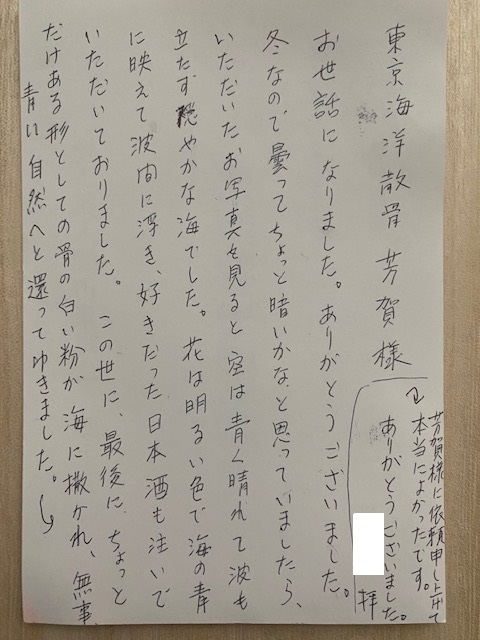 東京海洋散骨 芳賀様
お世話になりました。ありがとうございました。
冬なので曇ってちょっと暗いかなと思っていましたら、
いただいたお写真を見ると空は青く晴れて波も
立たず穏やかな海でした。花は明るい色で海の青
に映えて波間に浮き、好きだった日本酒も注いで
いただいておりました。この世に、最後に、ちょっと
だけある形としての骨の白い粉が海に撒かれ、無事
青い自然へと還ってゆきました。
芳賀様に依頼申し上げて
本当によかったです。
ありがとうございました。
拝